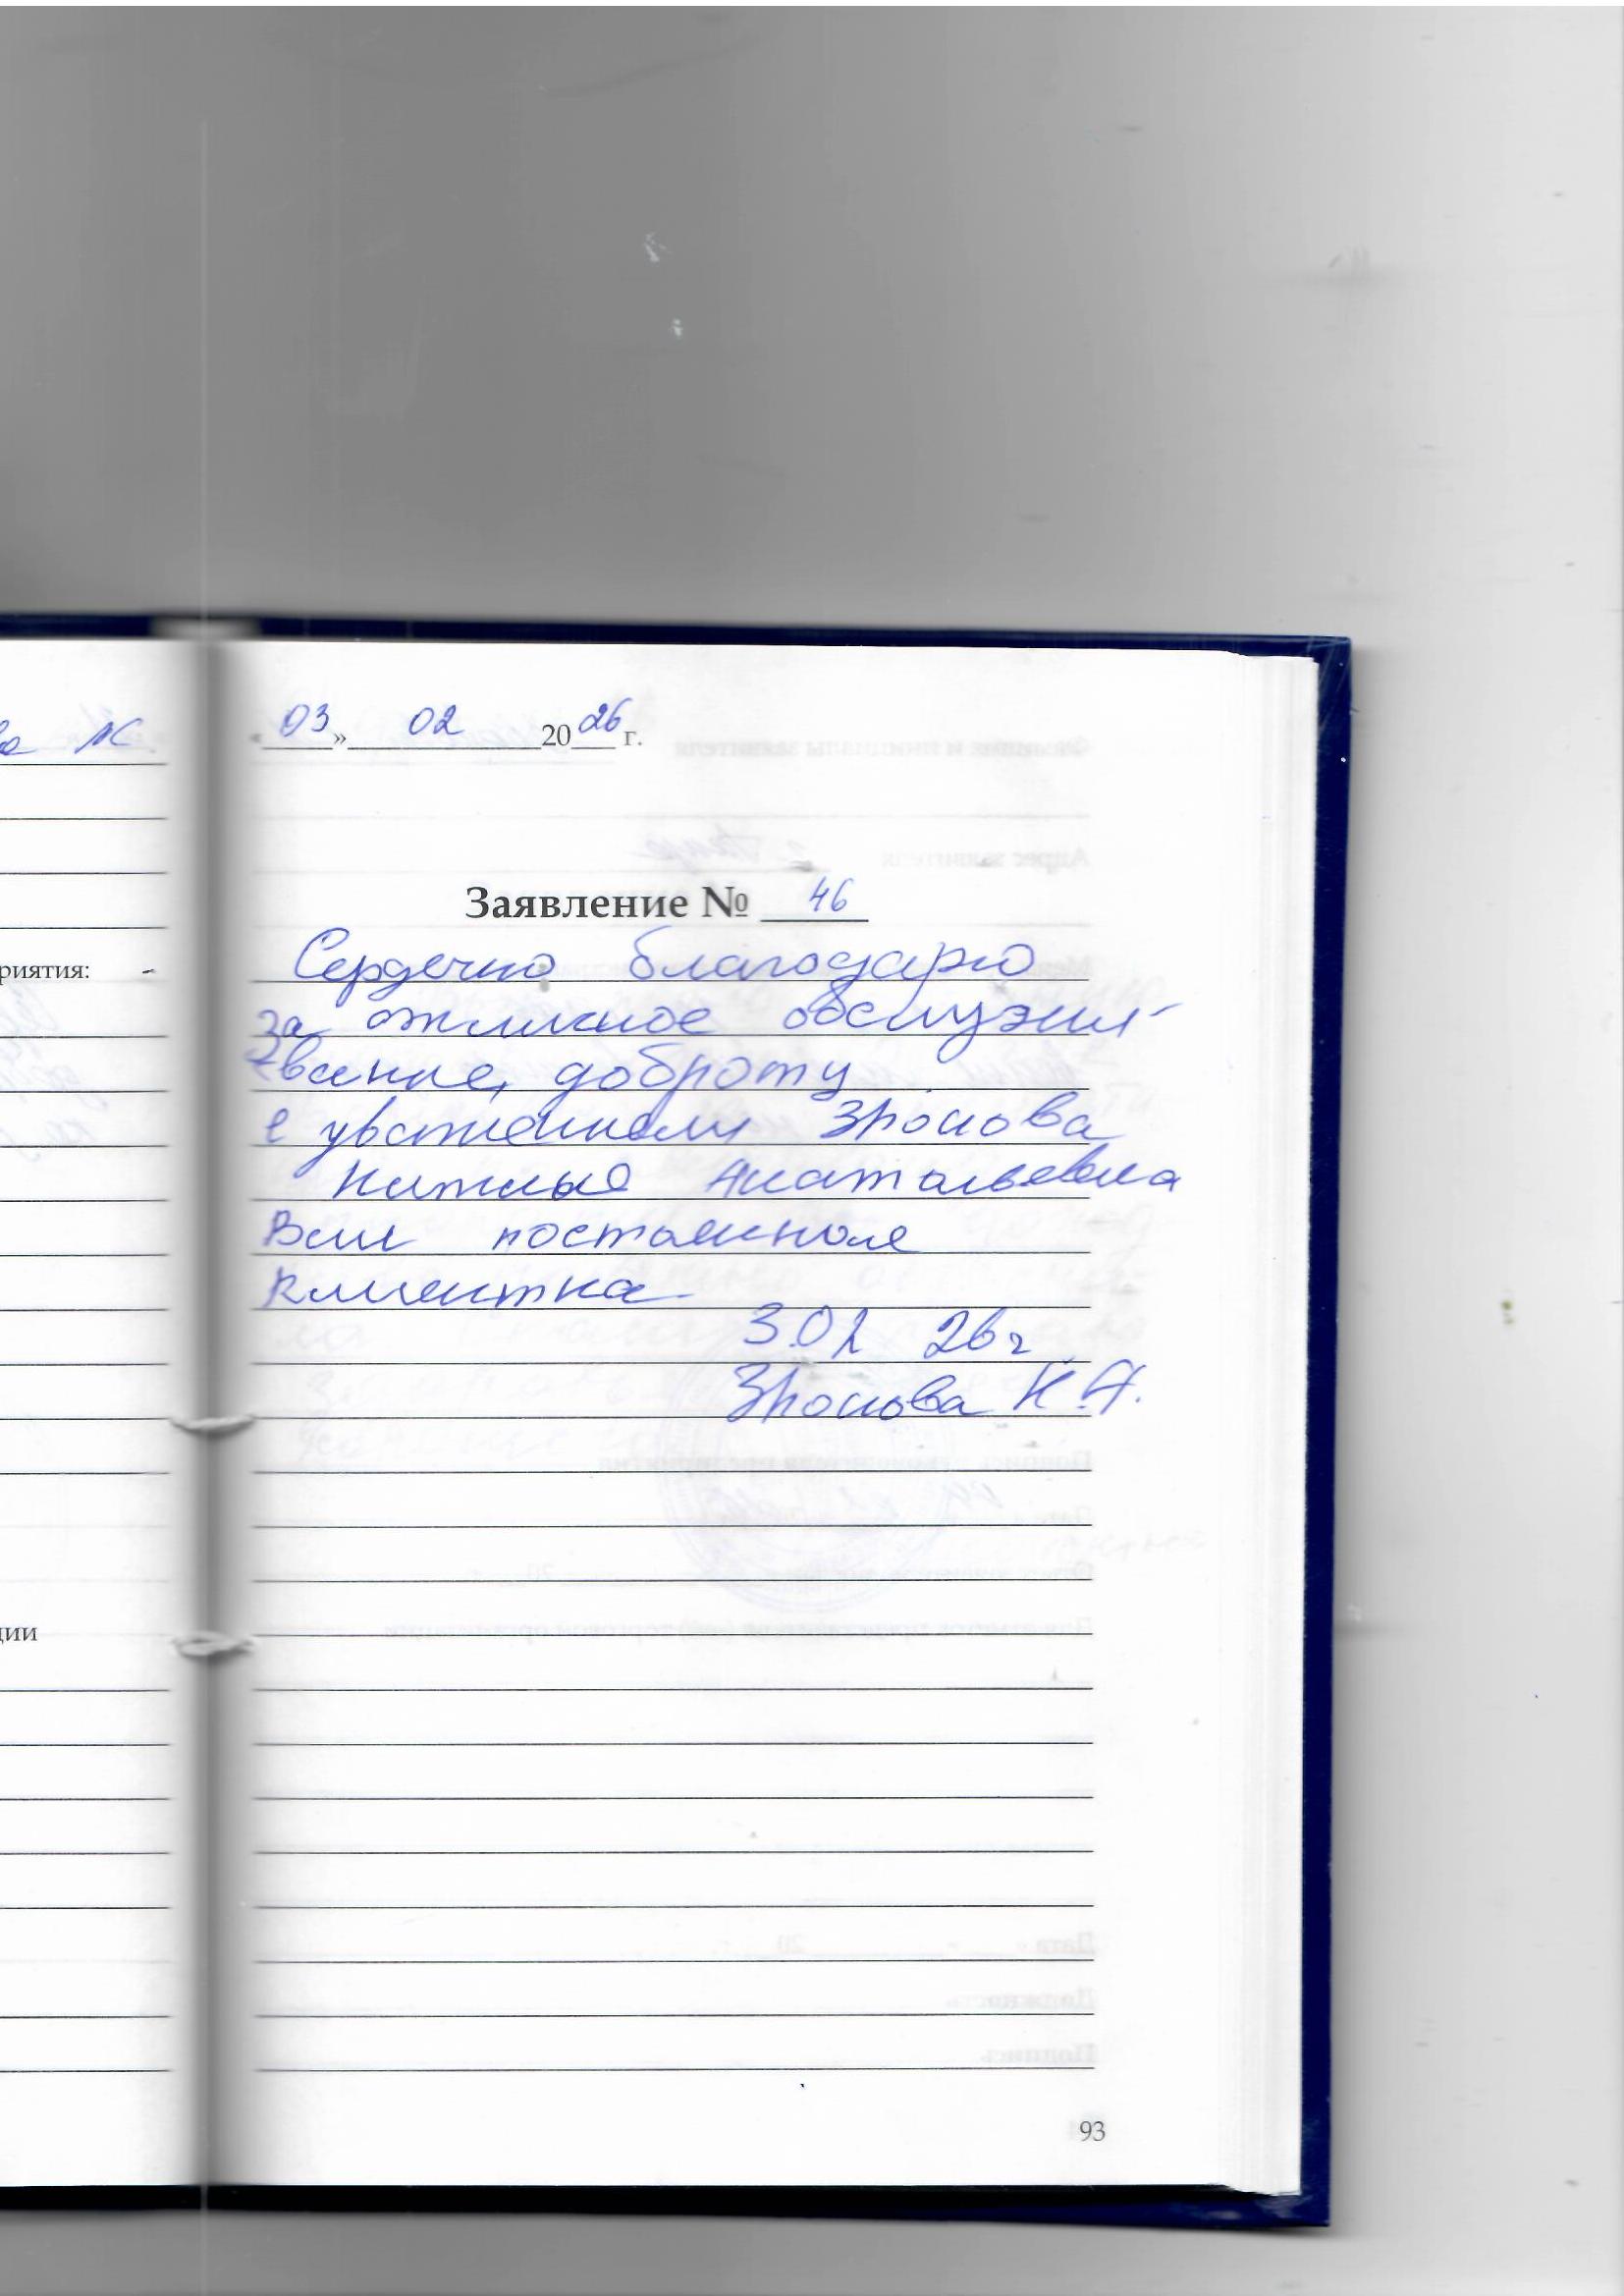 ва К
риятия: -
ции
«03» 02 2026 г.
Заявление № 46
Сердечно благодарю
за отличное обслужи-
вание, доброту
с уважением Зронова
Наталья Анатольевна
Ваш постоянная
клиентка.
3.02 26 г
Зронова Н.А.
93